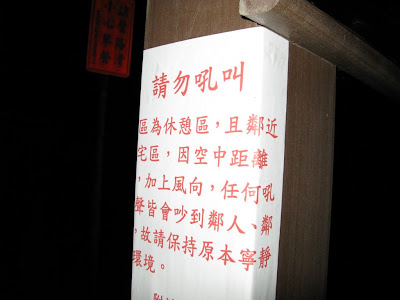 請勿吼叫
區為休憩區，且鄰近
宅區，因空中距離
，加上風向，任何吼
聲皆會吵到鄰人、鄰
。故請保持原本寧靜
環境。